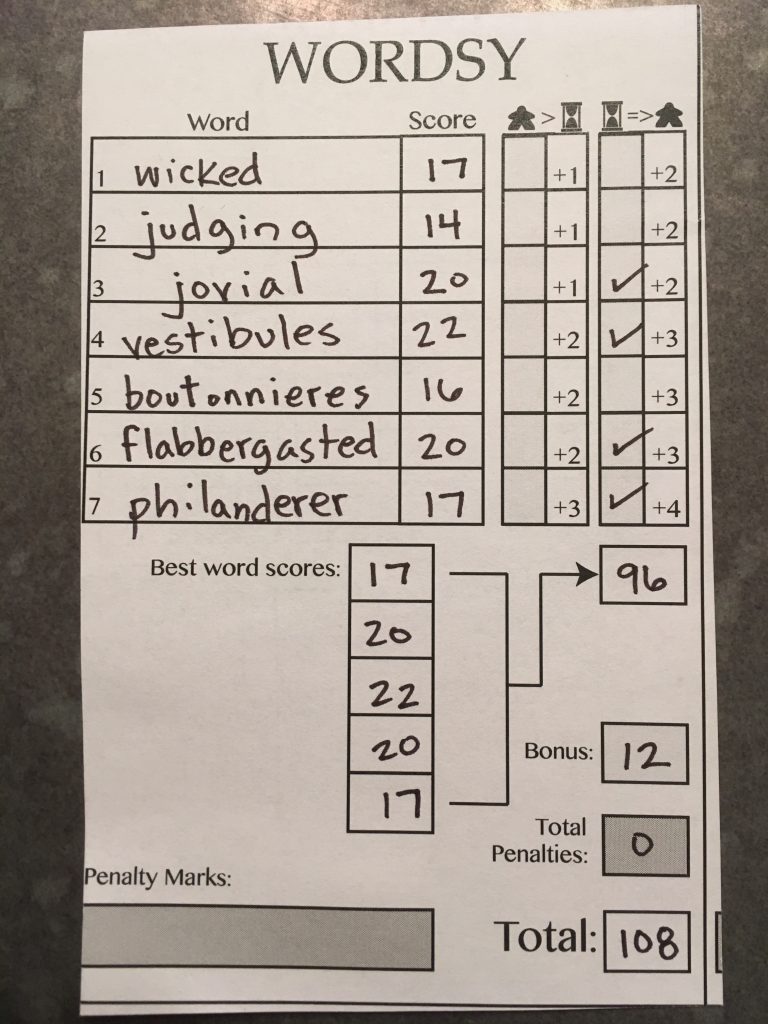 WORDSY
Word Score > =>
1 wicked 17 +1 +2
2 judging 14 +1 +2
3 jovial 20 +1 ✓ +2
4 vestibules 22 +2 ✓ +3
5 boutonnieres 16 +2 +3
6 flabbergasted 20 +2 ✓ +3
7 philanderer 17 +3 ✓ +4
Best word scores: 17 96
20
22
20
Bonus: 12
17
Total Penalties: 0
Penalty Marks:
Total: 108